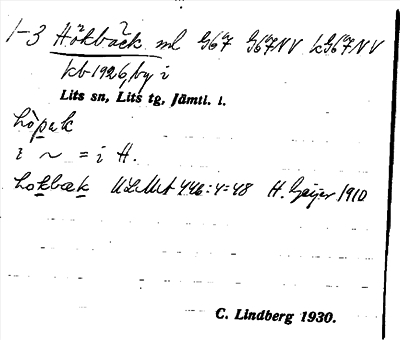 1-3 Hökbäck ml G67 G67NV kG67NV
kb 1926, by i
Lits sn, Lits tg, Jämtl. l.
hòpak
i ~ = i H.
hokbæk ULMA 446:4=48 H. Geijer 1910
C. Lindberg 1930.